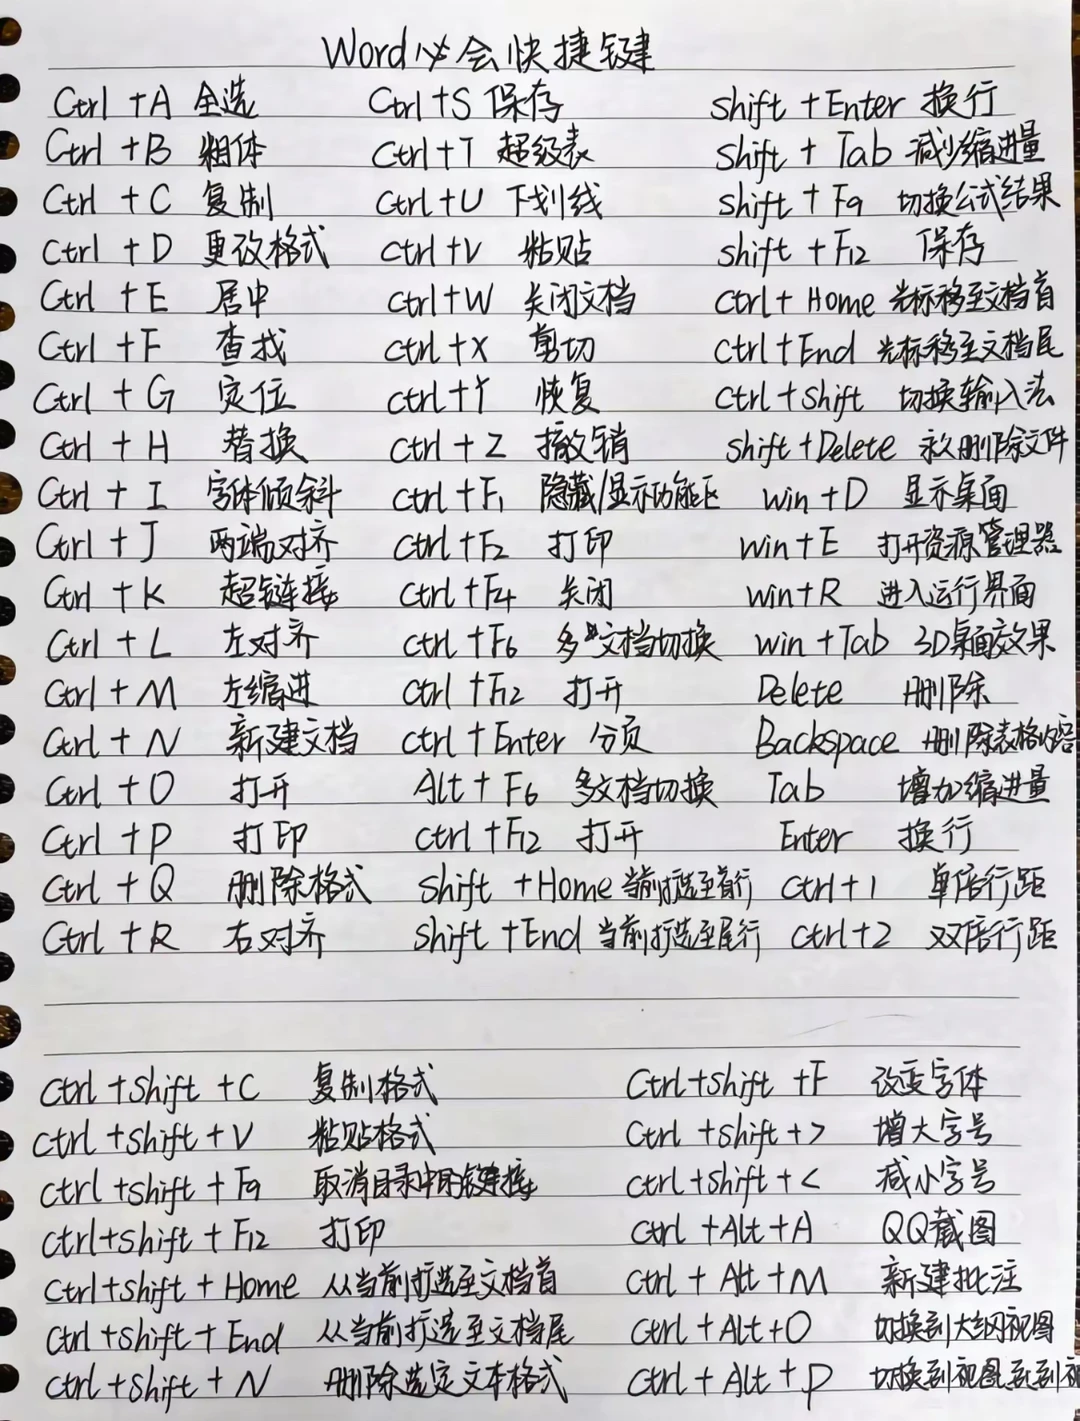 Word必会快捷键
Ctrl +A 全选 Ctrl +S 保存 shift +Enter 换行
Ctrl +B 粗体 Ctrl+T 超级表 shift + Tab 减少缩进量
Ctrl + C 复制 Ctrl+U 下划线 shift + F9 切换公式结果
Ctrl + D 更改格式 Ctrl+V 粘贴 shift + F12 保存
Ctrl + E 居中 Ctrl+W 关闭文档 Ctrl+ Home 光标移至文档首
Ctrl +F 查找 Ctrl+X 剪切 Ctrl+End 光标移至文档尾
Ctrl + G 定位 Ctrl+Y 恢复 Ctrl+Shift 切换输入法
Ctrl + H 替换 Ctrl + Z 撤销 shift+Delete 永久删除文件
Ctrl + I 字体倾斜 Ctrl +F1 隐藏/显示功能区 win +D 显示桌面
Ctrl + J 两端对齐 Ctrl+F2 打印 win+E 打开资源管理器
Ctrl + K 超链接 Ctrl+F4 关闭 win+R 进入运行界面
Ctrl + L 左对齐 Ctrl +F6 多文档切换 win +Tab 3D桌面效果
Ctrl + M 左缩进 Ctrl +F12 打开 Delete 删除
Ctrl + N 新建文档 Ctrl +Enter 分页 Backspace 删除表格内容
Ctrl + O 打开 Alt + F6 多文档切换 Tab 增加缩进量
Ctrl + P 打印 Ctrl +F12 打开 Enter 换行
Ctrl + Q 删除格式 shift +Home 当前打选至首行 Ctrl+1 单倍行距
Ctrl + R 右对齐 shift +End 当前打选至尾行 Ctrl+2 双倍行距
Ctrl +shift +C 复制格式 Ctrl+shift +F 改变字体
Ctrl +shift +V 粘贴格式 Ctrl +shift+> 增大字号
Ctrl +shift + F9 取消目录中的链接 Ctrl+shift +< 减小字号
Ctrl+shift + F12 打印 Ctrl +Alt +A QQ截图
Ctrl+shift + Home 从当前打选至文档首 Ctrl + Alt +M 新建批注
Ctrl +shift + End 从当前打选至文档尾 Ctrl +Alt+O 切换到大纲视图
Ctrl +shift + N 删除选定文本格式 Ctrl + Alt +P 切换到视图